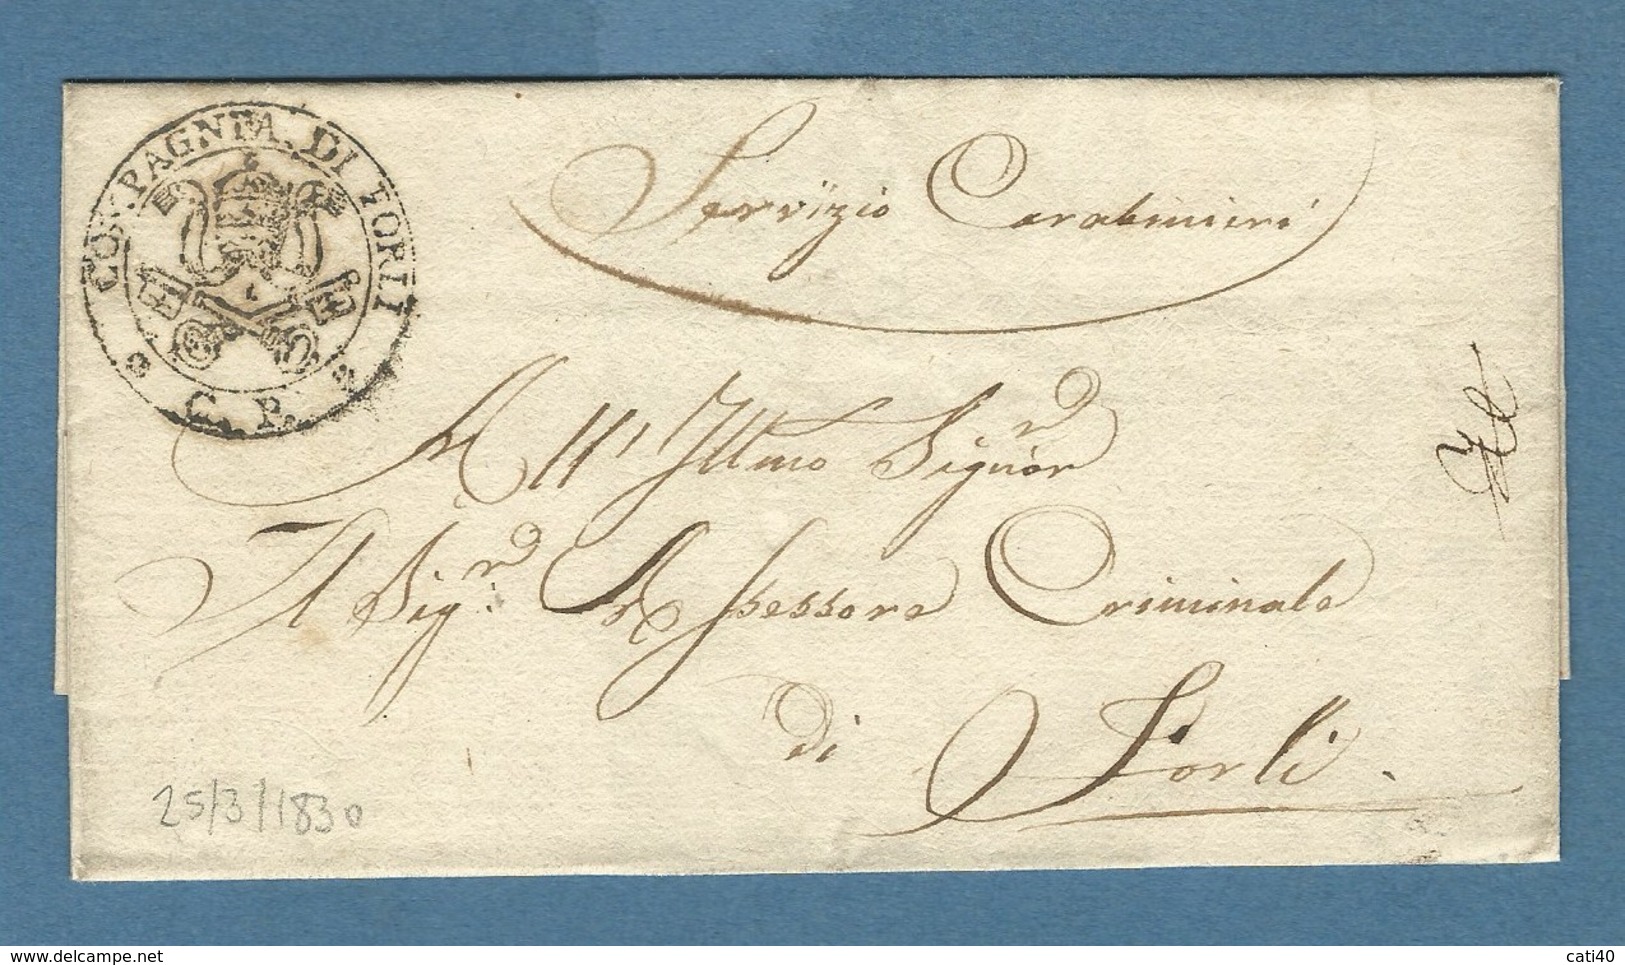 COMPAGNIA DI FORLI
C. P.
Servizio Carabinieri
All' Illmo Signor
Il Sigr. Assessore Criminale
di Forlì.
25/3/1830
www.delcampe.net
cati40